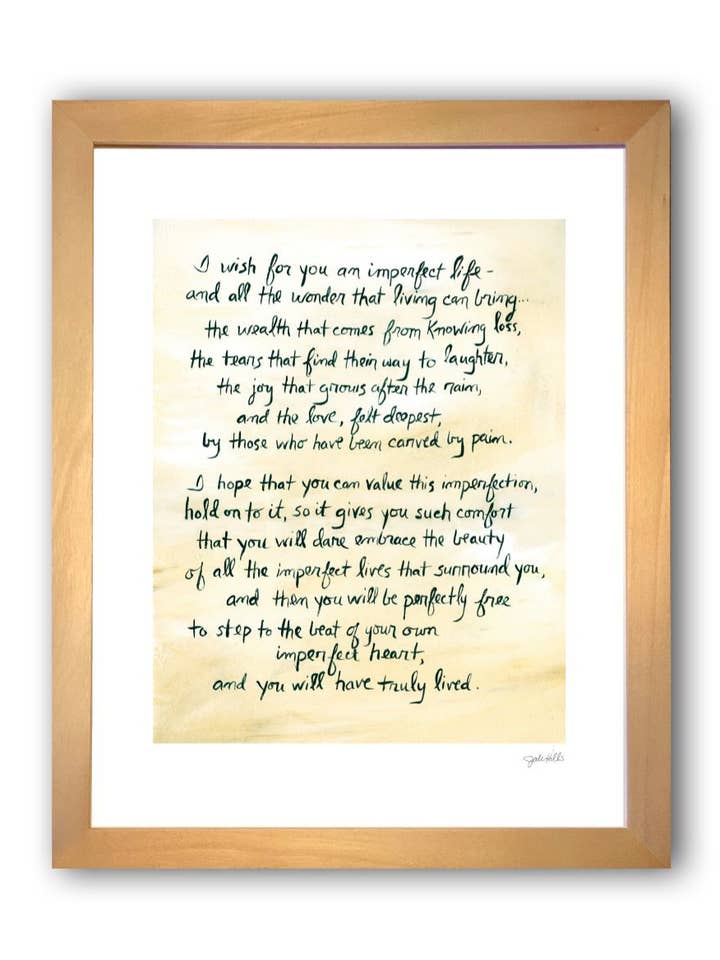 I wish for you an imperfect life -
and all the wonder that living can bring...
the wealth that comes from knowing loss,
the tears that find their way to laughter,
the joy that grows after the rain,
and the love, felt deepest,
by those who have been carved by pain.
I hope that you can value this imperfection,
hold on to it, so it gives you such comfort
that you will dare embrace the beauty
of all the imperfect lives that surround you,
and then you will be perfectly free
to step to the beat of your own
imperfect heart,
and you will have truly lived.